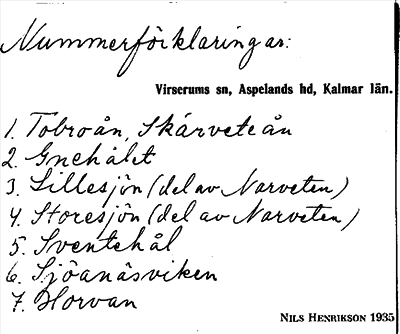 Nummerförklaringar:
Virserums sn, Aspelands hd, Kalmar län.
1. Tobroån, Skärveteån
2. Gnehålet
3. Lillesjön (del av Narveten)
4. Storesjön (del av Narveten)
5. Sventehål
6. Sjöanäsviken
7. Horvan
NILS HENRIKSON 1935